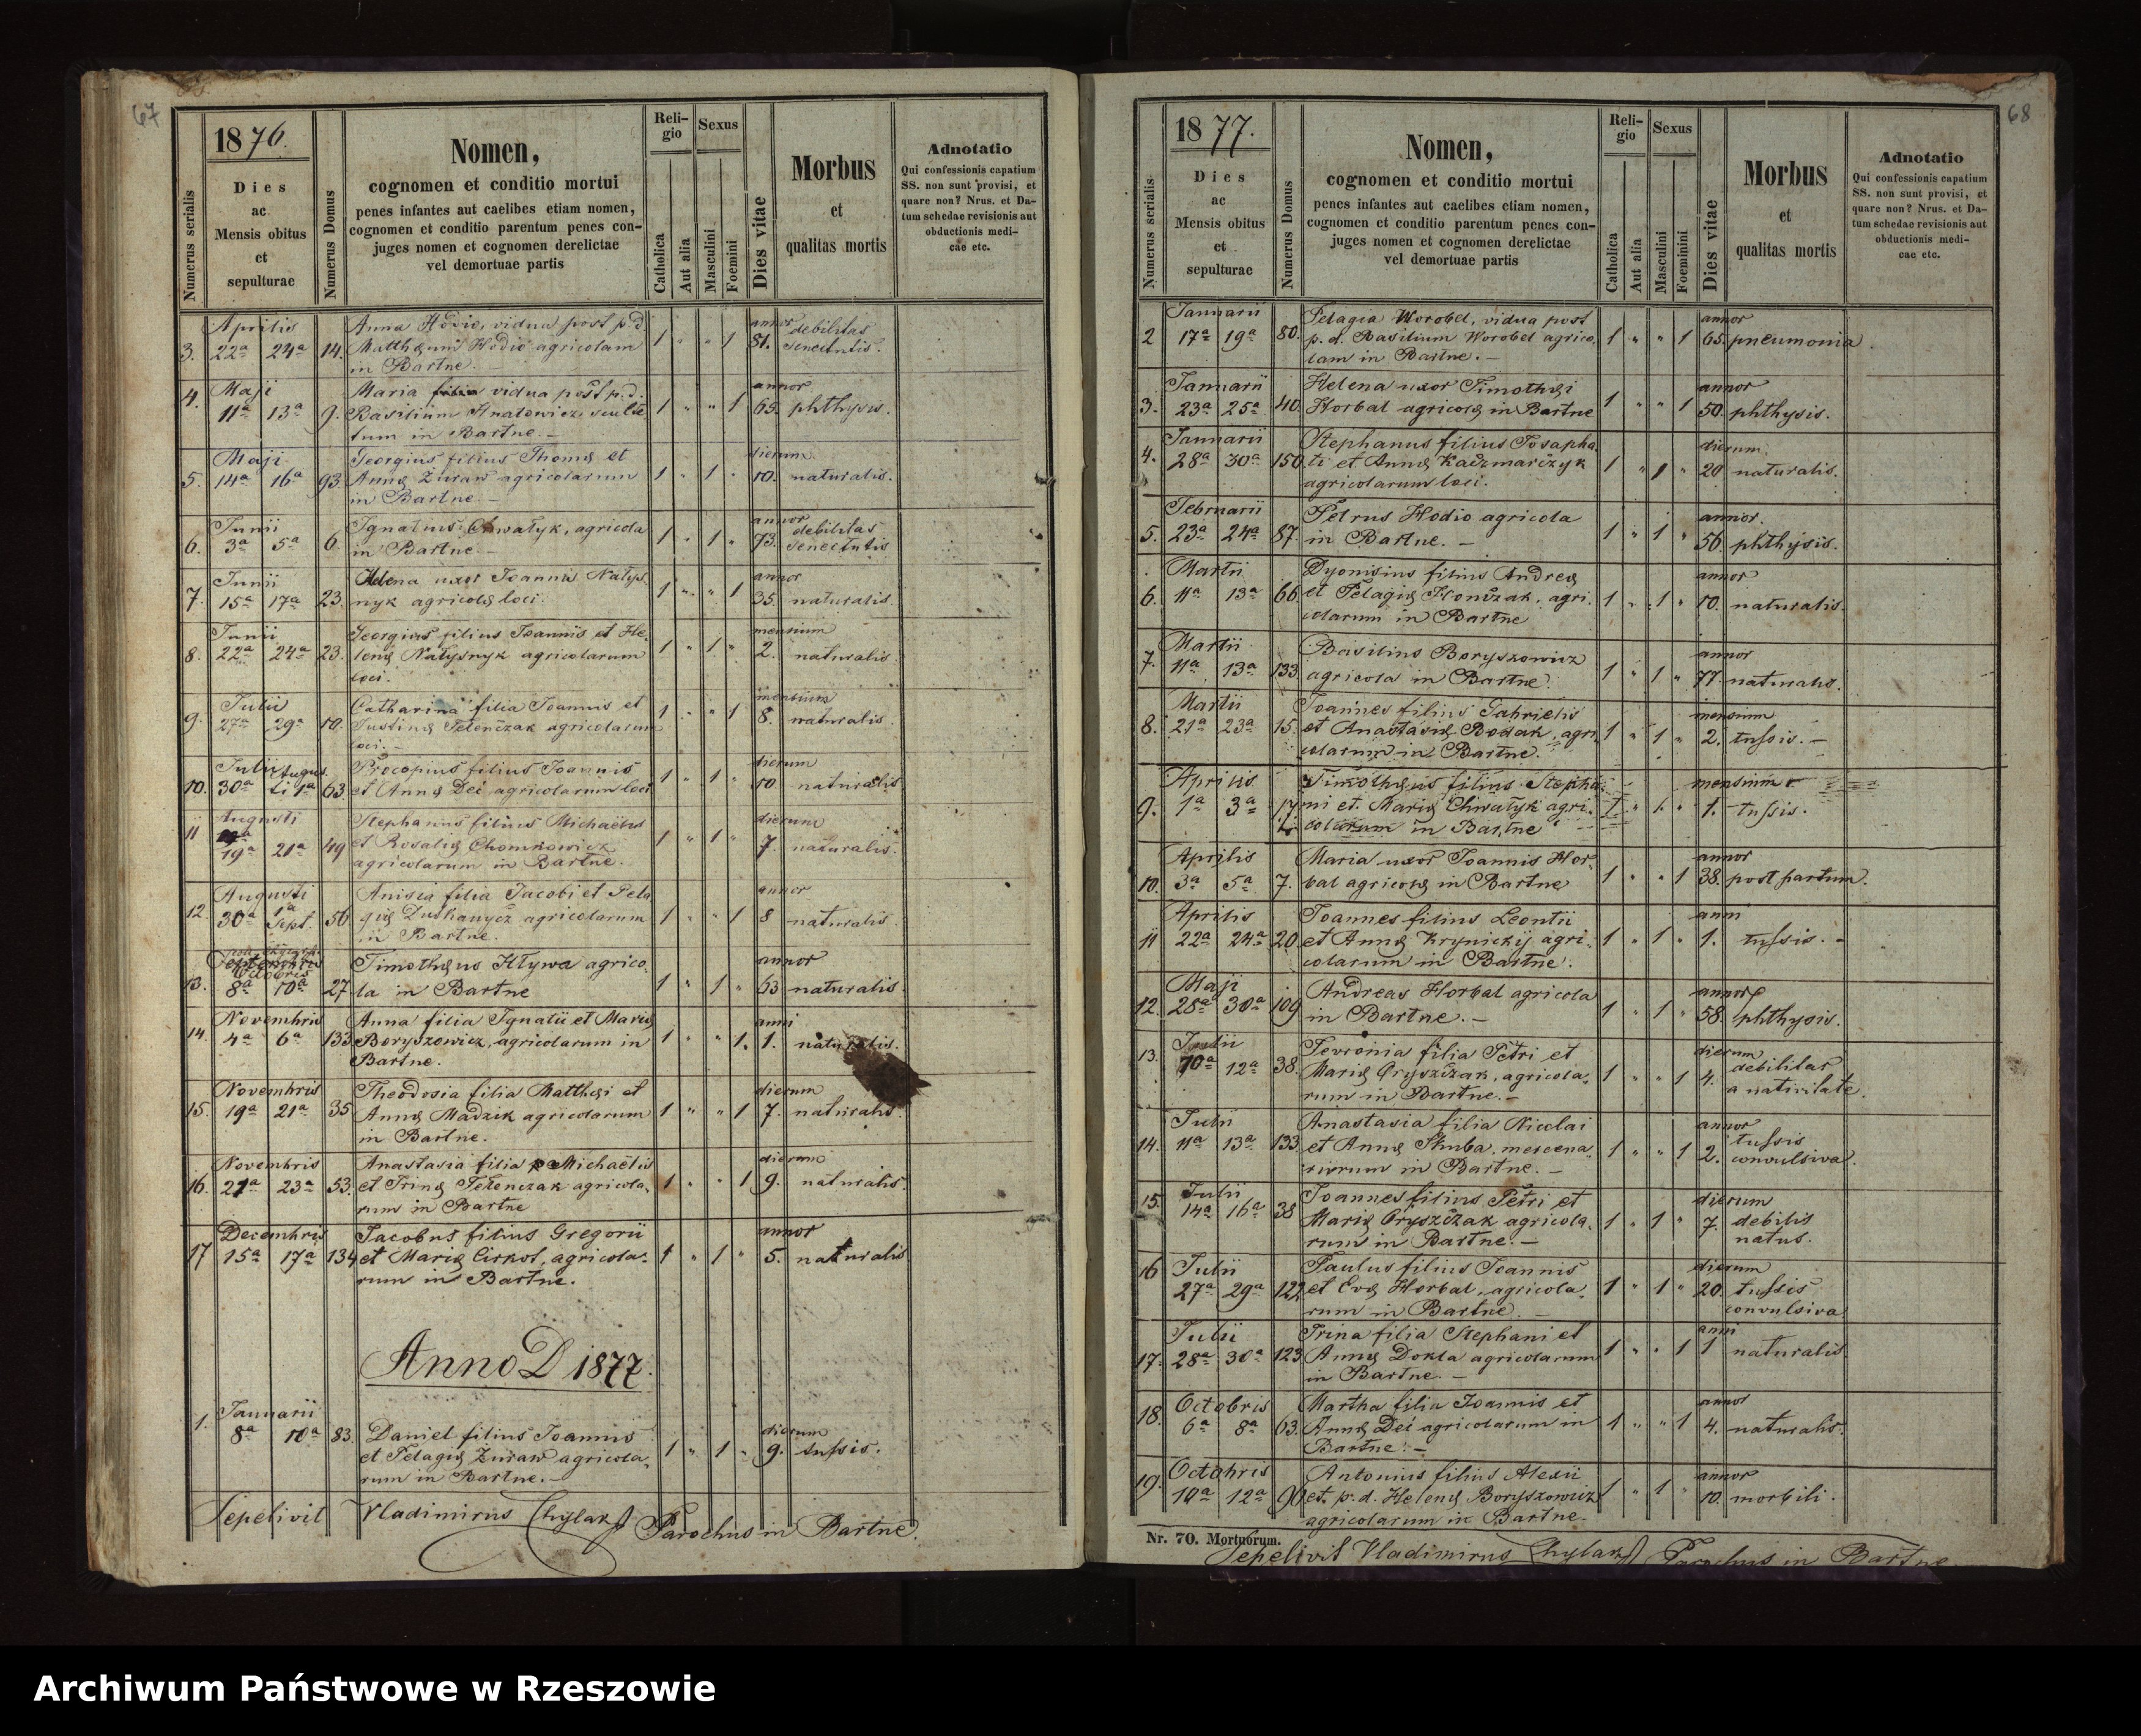 67
1876.
Numerus serialis
Dies
ac
Mensis obitus
et
sepulturae
Numerus Domus
Nomen,
cognomen et conditio mortui
penes infantes aut caelibes etiam nomen,
cognomen et conditio parentum penes con-
juges nomen et cognomen derelictae
vel demortuae partis
Reli-
gio
Catholica
Aut alia
Sexus
Masculini
Foeminini
Dies vitae
Morbus
et
qualitas mortis
Adnotatio
Qui confessionis capatium
SS. non sunt provisi, et
quare non? Nrus. et Da-
tum schedae revisionis aut
obductionis medi-
cae etc.
Aprilis Anna Hodio, vidua post p.d. annor debilitas
3. 22a 24a 14. Matthæum Hodio agricolam 1 " " 1 81. senectutis.
in Bartne. –
Maji Maria vidua post p.d. annor
4. 11a 13a 9. Basilium Hnatowicz scul­te 1 " " 1 65. phthysis.
tum in Bartne. –
Maji Georgius filius Thomæ et dierum
5. 14a 16a 93. Annæ Żuraw agricolarum 1 " 1 " 10. naturalis.
in Bartne. –
Junii Ignatius Chwatyk, agricola annor debilitas
6. 3a 5a 6. in Bartne. – 1 " 1 " 73. senectutis
Junii Helena uxor Joannis Natys annor
7. 15a 17a 23. nyk agricolæ loci. 1 " " 1 35. naturalis.
Junii Georgius filius Joannis et He- mensium
8. 22a 24a 23. lenæ Natysnyk agricolarum 1 " 1 " 2. naturalis.
loci.
Julii Catharina filia Joannis et mensium
9. 27a 29a 10. Justinæ Felenczak agricolarum 1 " " 1 8. naturalis.
loci. –
Julii Augus Procopius filius Joannis dierum
10. 30a ti 1a 63. et Annæ Dei agricolarum loci 1 " 1 " 10 naturalis
Augusti Stephanus filius Michaëlis dierum
11 19a 21a 49 et Rosaliæ Chomkowicz 1 " 1 " 7. naturalis.
agricolarum in Bartne.
Augusti Anisia filia Jacobi et Pela annor
12. 30a 1a Sept. 56 giæ Duchanycz agricolarum 1 " " 1 8 naturalis.
in Bartne.
Octobris Timothæus Hlywa agrico- annor
13. 8a 10a 27 la in Bartne 1 " 1 " 63 naturalis.
Novembris Anna filia Ignatii et Mariæ anni
14. 4a 6a 133 Boryszowicz, agricolarum in 1 " " 1. 1. naturalis.
Bartne.
Novembris Theodosia filia Matthæi et dierum
15. 19a 21a 35 Annæ Madzik agricolarum 1 " " 1 7. naturalis.
in Bartne.
Novembris Anastasia filia Michaëlis dierum
16. 21a 23a 53. et Irinæ Felenczak agricola- 1 " " 1 9. naturalis.
rum in Bartne
Decembris Jacobus filius Gregorii annor
17 15a 17a 134 et Mariæ Cirkot, agricola- 1 " 1 " 5. naturalis
rum in Bartne.
Anno D 1877.
Januarii
1. 8a 10a 83. Daniel filius Joannis dierum
et Pelagiæ Żuraw agricola- 1 " 1 " 9. tussis.
rum in Bartne. –
Sepelivit Vladimirus Chylak Parochus in Bartne.
68
1877.
Numerus serialis
Dies
ac
Mensis obitus
et
sepulturae
Numerus Domus
Nomen,
cognomen et conditio mortui
penes infantes aut caelibes etiam nomen,
cognomen et conditio parentum penes con-
juges nomen et cognomen derelictae
vel demortuae partis
Reli-
gio
Catholica
Aut alia
Sexus
Masculini
Foeminini
Dies vitae
Morbus
et
qualitas mortis
Adnotatio
Qui confessionis capatium
SS. non sunt provisi, et
quare non? Nrus. et Da-
tum schedae revisionis aut
obductionis medi-
cae etc.
Januarii Pelagia Worobel, vidua post annor
2 17a 19a 80. p. d. Basilium Worobel agrico- 1 " " 1 65. pneumonia.
lam in Bartne. –
Januarii Helena uxor Timothæi annor
3. 23a 25a 40. Horbal agricolæ in Bartne 1 " " 1 50. phthysis.
Januarii Stephanus filius Josapha- dierum
4. 28a 30a 150. ti et Annæ Kaczmarczyk 1 " 1 " 20 naturalis.
agricolarum loci.
Februarii Petrus Hodio agricola annor.
5. 23a 24a 87. in Bartne. – 1 " 1 " 56. phthysis.
Martii Dyonisius filius Andreæ annor
6. 11a 13a 66. et Pelagiæ Honczak, agri- 1 " 1 " 10. naturalis.
colarum in Bartne
Martii Basilius Boryszowicz annor
7. 11a 13a 133. agricola in Bartne. 1 " 1 " 77. naturalis.
Martii Joannes filius Gabrielis mensium
8. 21a 23a 15. et Anastasiæ Bodak, agri- 1 " 1 " 2. tussis. –
colarum in Bartne.
Aprilis Timothæus filius Stepha- mensium
9. 1a 3a 17. ni et Mariæ Chwatyk agri- 1 " 1. " 1. tussis.
colarum in Bartne
Aprilis Maria uxor Joannis Hor- annor
10. 3a 5a 7. bal agricolæ in Bartne 1 " " 1 38. post partum.
Aprilis Joannes filius Leontii anni
11 22a 24a 20 et Annæ Krynickij agri- 1 " 1 " 1. tussis. –
colarum in Bartne.
Maji Andreas Horbal agricola annor
12. 28a 30a 109 in Bartne. – 1 " 1 " 58. phthysis.
Julii Fevronia filia Petri et dierum
13. 10a 12a 38. Mariæ Gryszczak, agricola- 1 " " 1 4. debilitas
rum in Bartne. – a nativitate.
Julii Anastasia filia Nicolai annor
14. 11a 13a 133 et Annæ Skuba, mercena- 1 " " 1 2. tussis
riorum in Bartne. – convulsiva.
Julii Joannes filius Petri et dierum
15. 14a 16a 38 Mariæ Gryszczak agricola- 1 " 1 " 7. debilis
rum in Bartne. – natus.
16 Julii Paulus filius Joannis dierum
27a 29a 122 et Evæ Horbal, agricola- 1 " 1 " 20. tussis
rum in Bartne. – convulsiva
Julii Irina filia Stephani et anni
17. 28a 30a 123 Annæ Dokla agricolarum 1 " " 1 1 naturalis.
in Bartne. –
Octobris Martha filia Joannis et annor
18. 6a 8a 63. Annæ Dei agricolarum in 1 " " 1 4. naturalis.
Bartne. –
Octobris Antonius filius Alexii annor
19. 10a 12a 90 et p. d. Helenæ Boryszowicz 1 " 1 " 10. morbili.
agricolarum in Bartne.
Nr. 70. Mortuorum.
Sepelivit Vladimirus Chylak Parochus in Bartne
Archiwum Państwowe w Rzeszowie